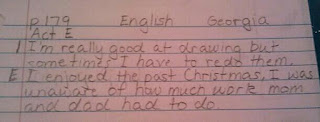 p.179 English Georgia
Act E
1 I'm really good at drawing but
sometimes I have to redo them.
E I enjoyed the past Christmas, I was
unawate of how much work mom
and dad had to do.